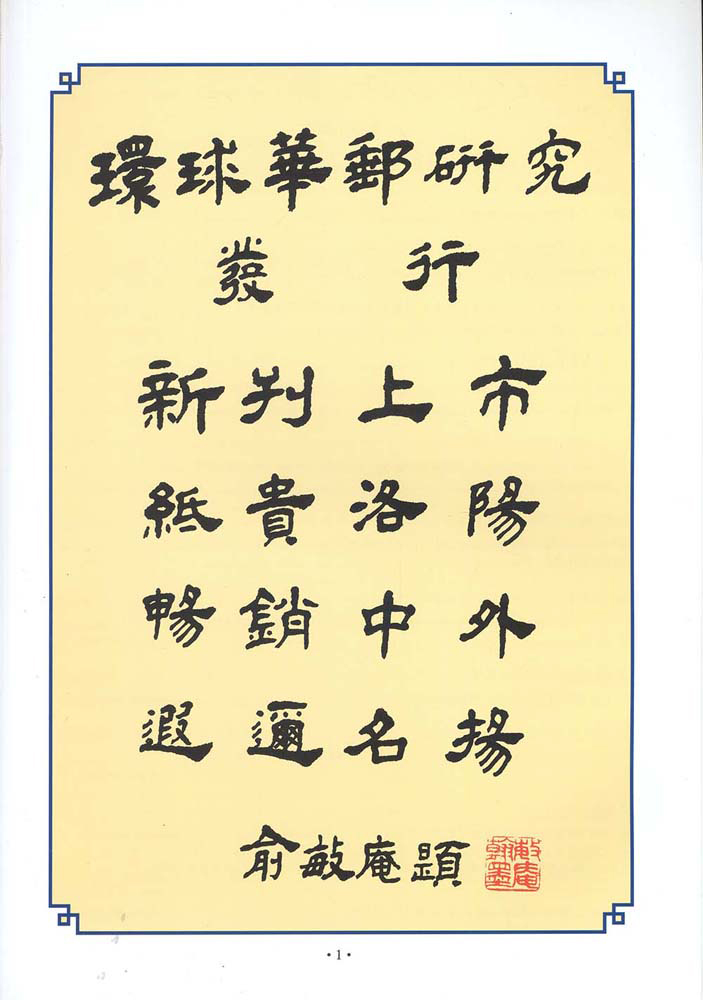 環球華郵研究
發行
新刋上市
紙貴洛陽
暢銷中外
遐邇名揚
俞敏庵題
敏庵翰墨
• 1 •